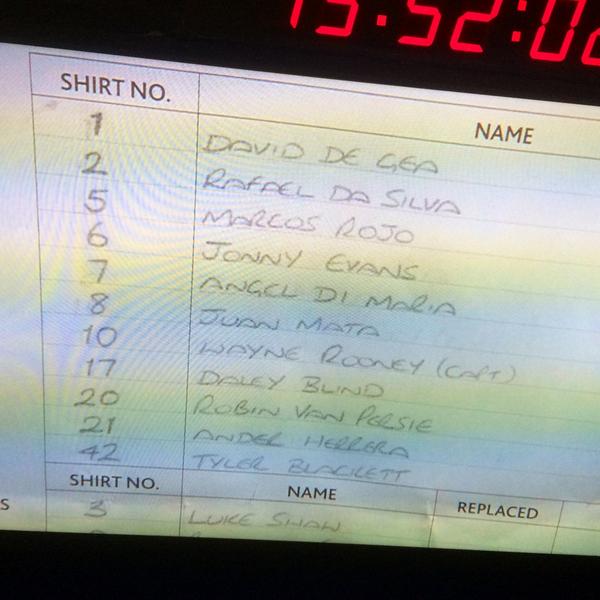 15:52:02
SHIRT NO. NAME
1 DAVID DE GEA
2 RAFAEL DA SILVA
5 MARCOS ROJO
6 JONNY EVANS
7 ANGEL DI MARIA
8 JUAN MATA
10 WAYNE ROONEY (CAPT)
17 DALEY BLIND
20 ROBIN VAN PERSIE
21 ANDER HERRERA
42 TYLER BLACKETT
SHIRT NO. NAME REPLACED
S
3 LUKE SHAW